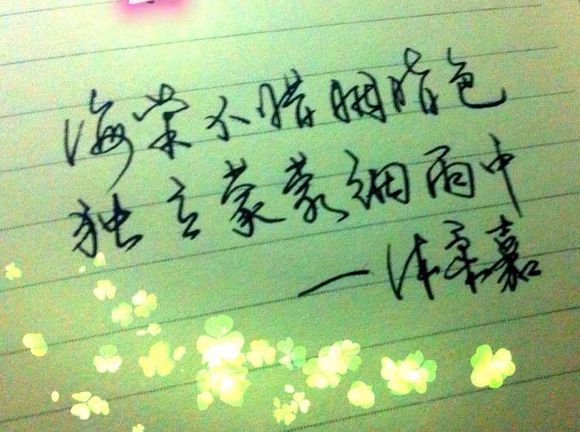 海棠不惜胭脂色
独立蒙蒙细雨中